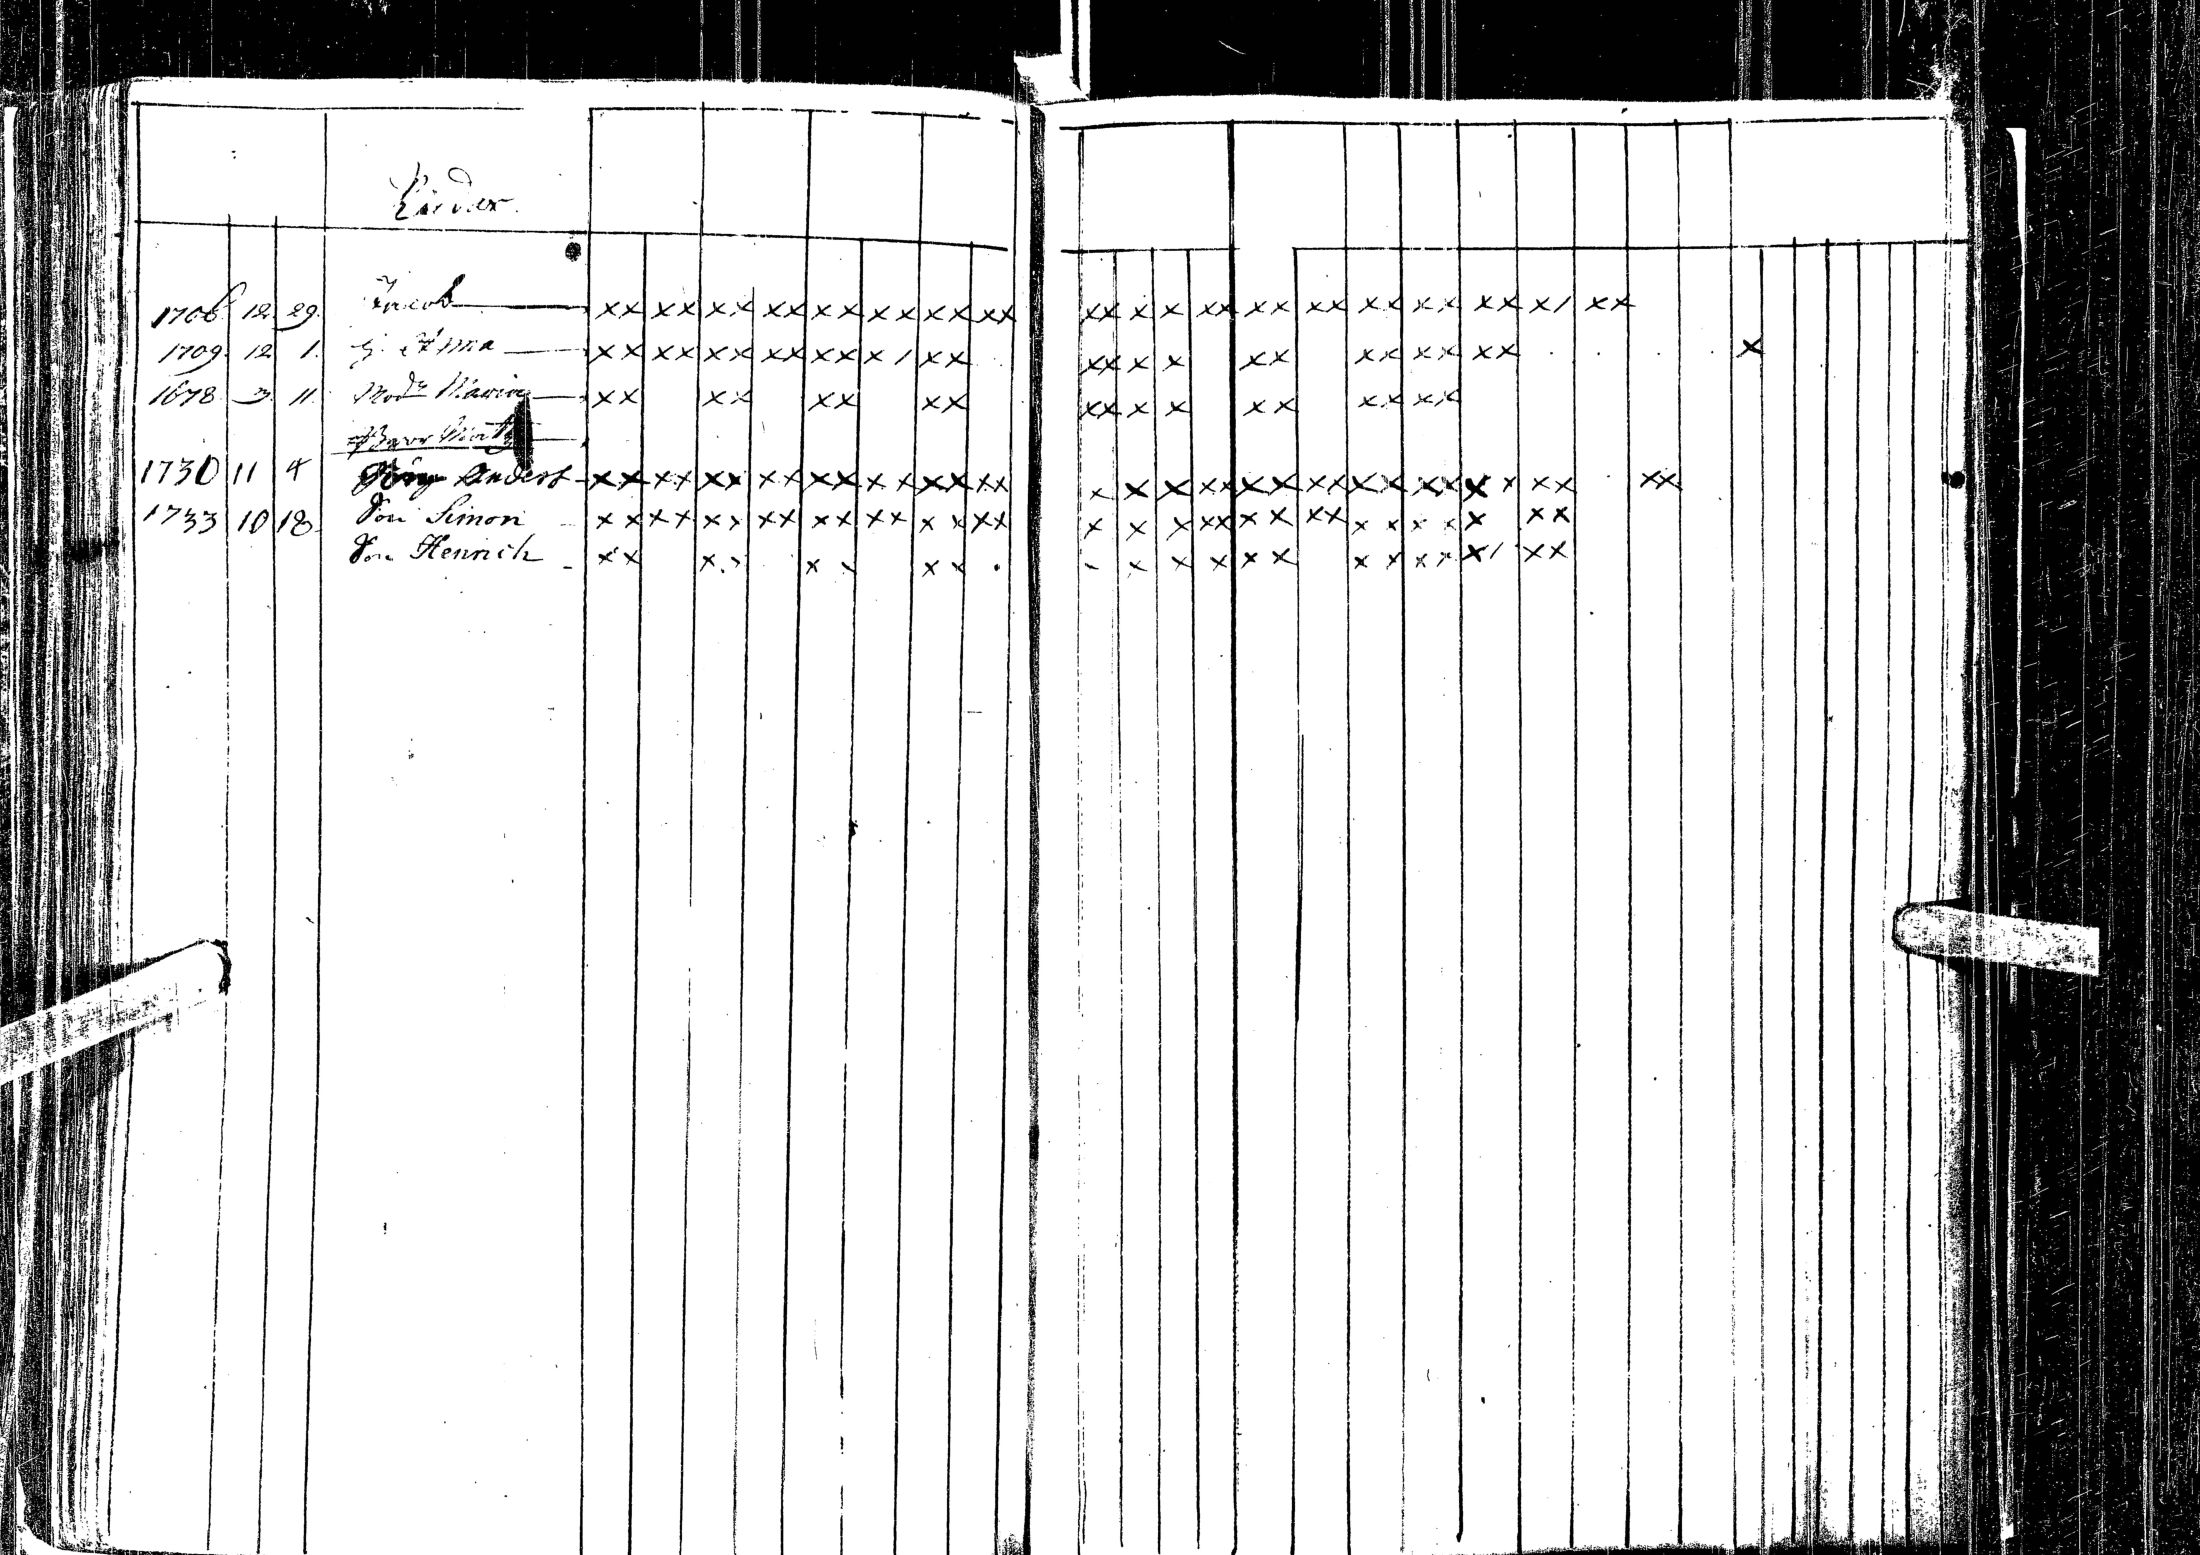 1706 12 29. Jacob xx xx xx xx xx xx xx xx xx x x xx xx xx xx xx xx x/ xx
1709. 12 1. H. Anna xx xx xx xx xx x/ xx xx x x xx xx xx xx x
1678 3 11. Modr Maria xx xx xx xx xx x x xx xx xx
1730 11 4 Anders xx xx xx xx xx xx xx xx x x x xx xx xx xx xx xx xx xx
1733 10 18 Son Simon xx xx xx xx xx xx xx xx x x x xx xx xx xx xx x xx
Son Henrich xx xx xx xx x x x xx xx xx x/ xx